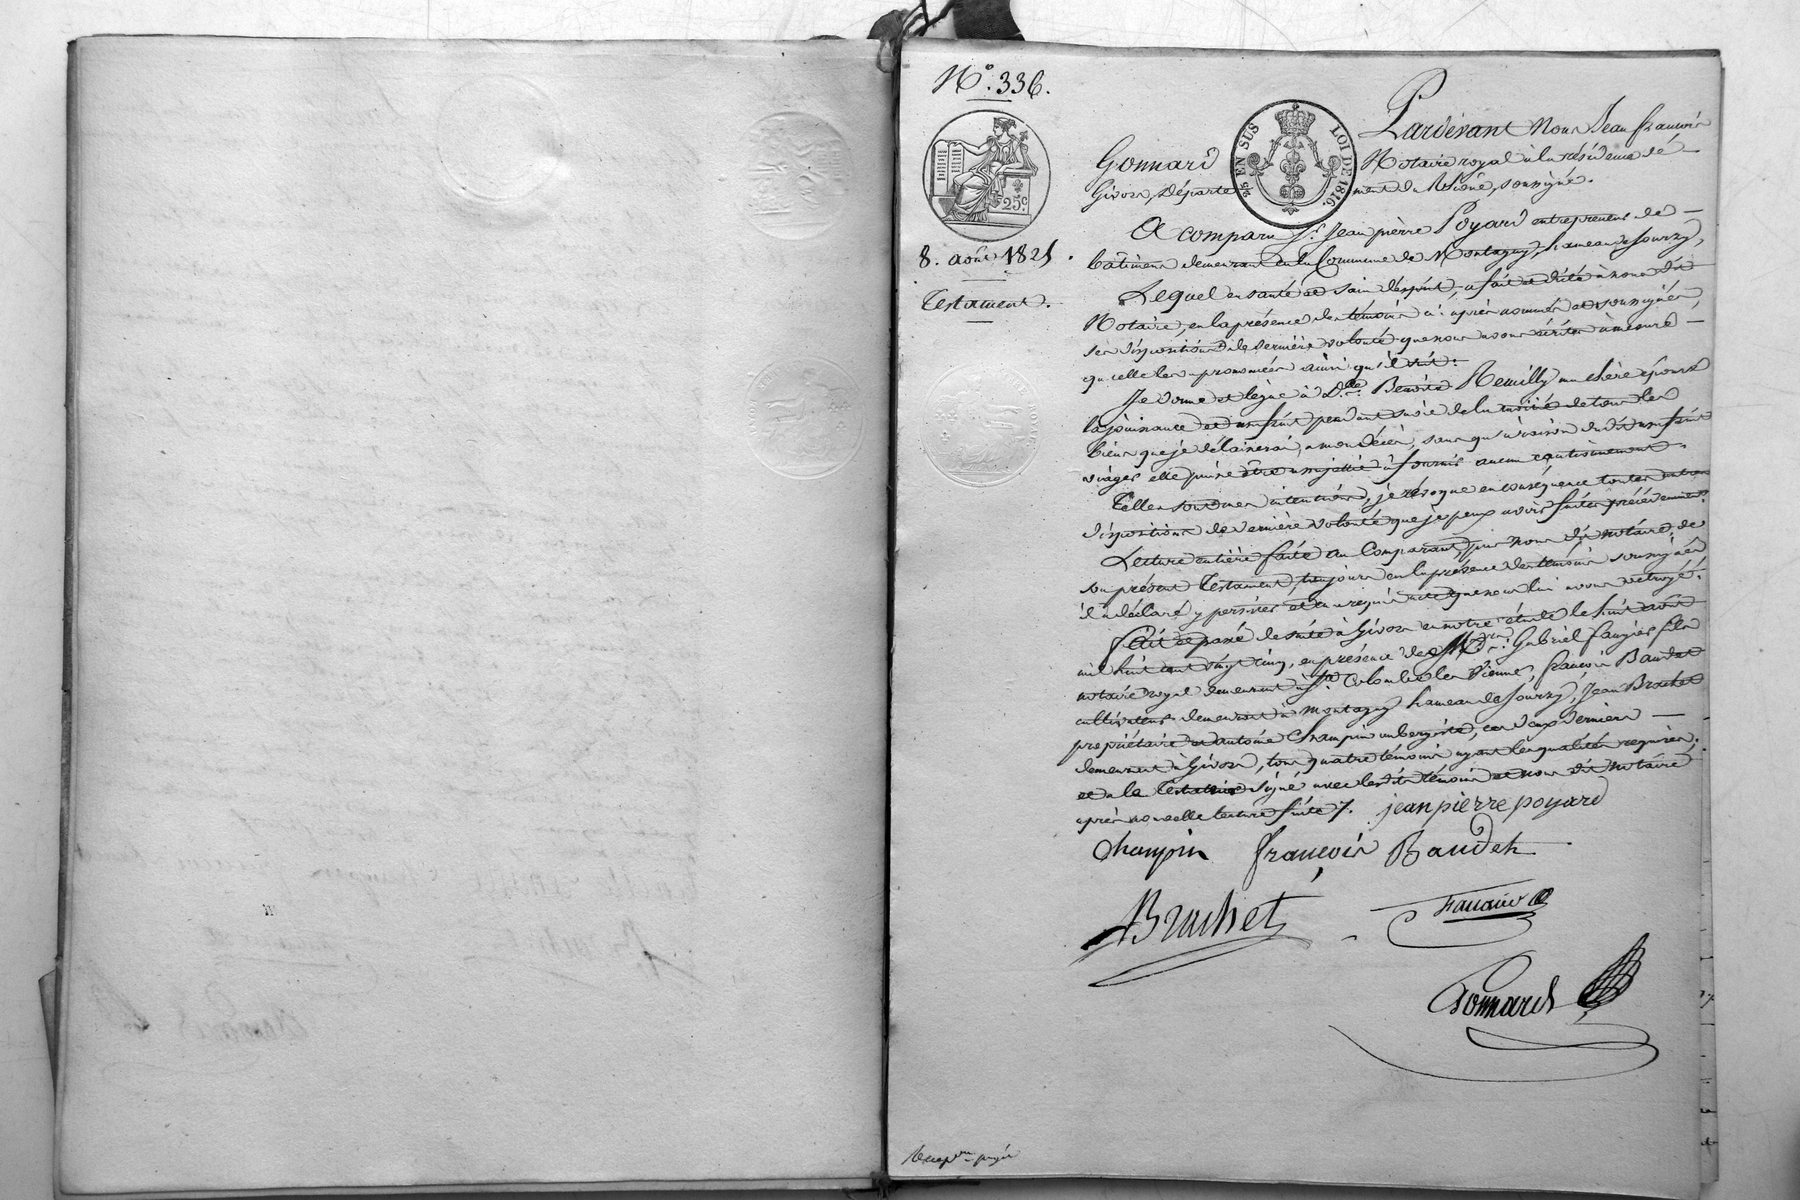 N.º 336.
25.c
8. août 1825.
Testament.
25c EN SUS LOI DE 1816.
Pardevant Nous Jean françois
Gonnard Notaire royal à la résidence de
Givors, départe ment du Rhône, soussigné.
A comparu Sr. Jean pierre Poyard entrepreneur de
bâtimens demeurant en la Commune de Montagny, hameau de Sourzy,
Lequel en santé et sain d'esprit, a fait et dicté à nous dit
Notaire, en la présence des témoins ci-après nommés et soussignés,
ses dispositions de dernière volonté que nous avons écrites à mesure
qu'elle les a prononcées ainsi qu'il suit:
Je donne et lègue à Dlle. Benoite Remilly ma chère épouse
la jouissance et usufruit pendant sa vie de la moitié de tous les
biens que je délaisserai, à mon décès, sans qu'à raison dudit usufruit
viager elle puisse être assujettie à fournir aucun cautionnement.
Telles sont mes intentions, je révoque en conséquence toutes autres
dispositions de dernière volonté que je peux avoir faites précédemment.
Lecture entière faite au Comparant, par nous dit notaire, de
son présent Testament, toujours en la présence des témoins soussignés
il a déclaré y persister et en a requis acte que nous lui avons octroyé.
Fait et passé de suite à Givors en notre étude le huit août
mil huit cent vingt cinq, en présence de Gabriel faugier fils
notaire royal demeurant à Ste Colombe les Vienne, françois Baudet
cultivateur demeurant à Montagny hameau de Sourzy, Jean Brachet
propriétaire et antoine Champin aubergiste, ces deux derniers
demeurant à Givors, tous quatre témoins ayant les qualités requises,
et a le testateur signé avec lesdits témoins et nous dit notaire
après nouvelle lecture faite. jean pierre poyard
Champin françois Baudet
Brachet
Faugier
Gonnard